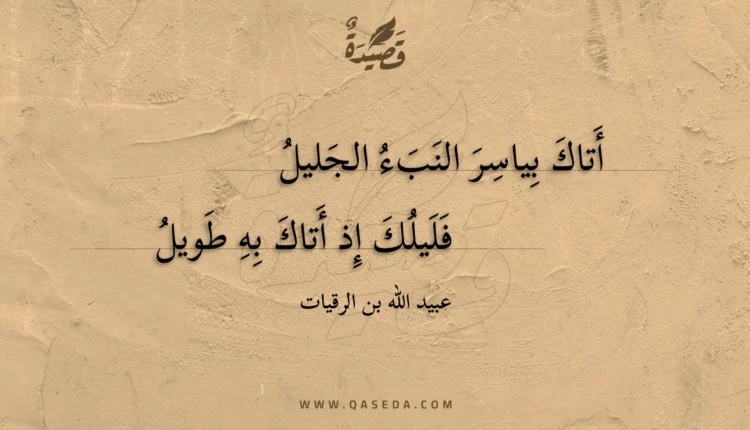 قَصِيدَةٌ
أَتاكَ بِياسِرَ النَبَءُ الجَليلُ
فَلَيلُكَ إِذ أَتاكَ بِهِ طَويلُ
عبيد الله بن الرقيات
WWW.QASEDA.COM